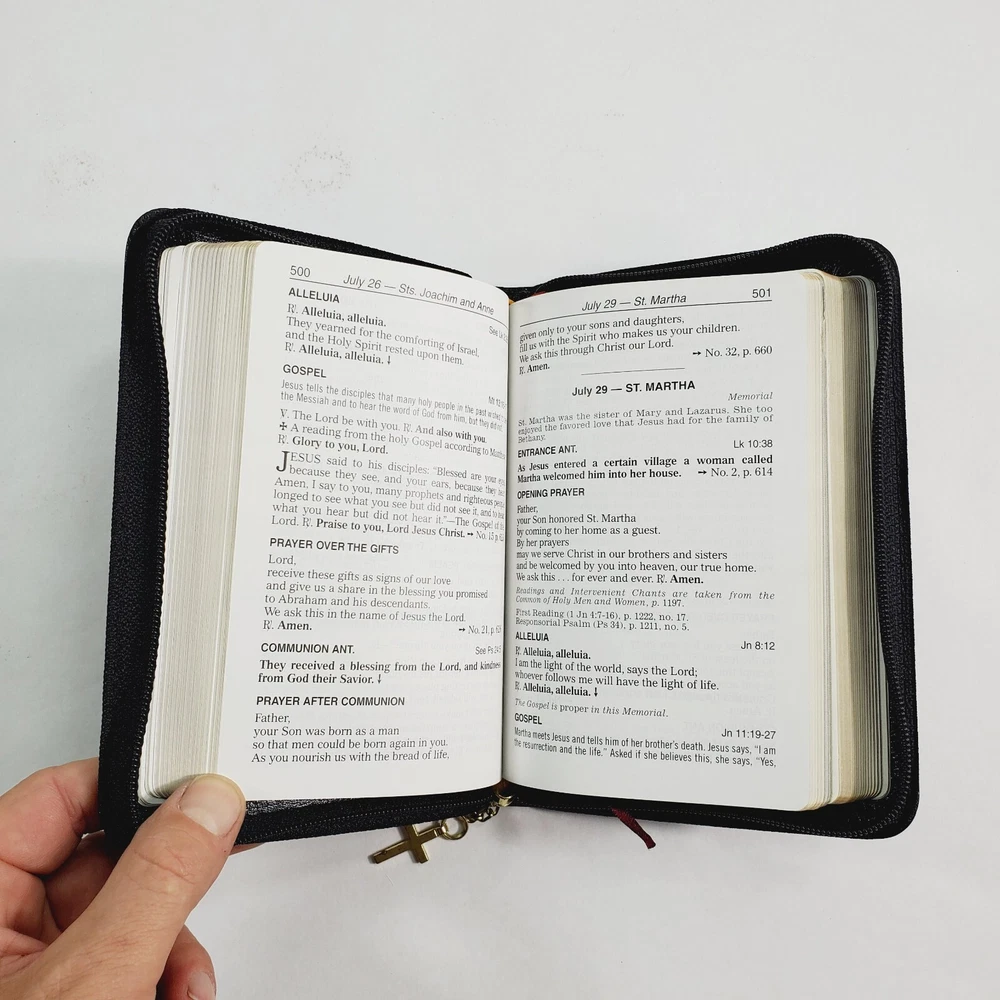 500 July 26 — Sts. Joachim and Anne
ALLELUIA See
℟. Alleluia, alleluia.
They yearned for the comforting of Israel,
and the Holy Spirit rested upon them.
℟. Alleluia, alleluia. ↓
GOSPEL Mt 13:
Jesus tells the disciples that many holy people in the past wished
the Messiah and to hear the word of God from him, but they did not.
℣. The Lord be with you. ℟. And also with you.
✠ A reading from the holy Gospel according to
℟. Glory to you, Lord.
JESUS said to his disciples: "Blessed are your
because they see, and your ears, because they
Amen, I say to you, many prophets and righteous
longed to see what you see but did not see it, and to
what you hear but did not hear it."—The Gospel of
Lord. ℟. Praise to you, Lord Jesus Christ. ➙ No. 15, p.
PRAYER OVER THE GIFTS
Lord,
receive these gifts as signs of our love
and give us a share in the blessing you promised
to Abraham and his descendants.
We ask this in the name of Jesus the Lord.
℟. Amen. ➙ No. 21, p.
COMMUNION ANT. See Ps
They received a blessing from the Lord, and kindness
from God their Savior. ↓
PRAYER AFTER COMMUNION
Father,
your Son was born as a man
so that men could be born again in you.
As you nourish us with the bread of life,
July 29 — St. Martha 501
given only to your sons and daughters,
fill us with the Spirit who makes us your children.
We ask this through Christ our Lord.
℟. Amen. ➙ No. 32, p. 660
July 29 — ST. MARTHA
Memorial
St. Martha was the sister of Mary and Lazarus. She too
enjoyed the favored love that Jesus had for the family of
Bethany.
ENTRANCE ANT. Lk 10:38
As Jesus entered a certain village a woman called
Martha welcomed him into her house. ➙ No. 2, p. 614
OPENING PRAYER
Father,
your Son honored St. Martha
by coming to her home as a guest.
By her prayers
may we serve Christ in our brothers and sisters
and be welcomed by you into heaven, our true home.
We ask this . . . for ever and ever. ℟. Amen.
Readings and Intervenient Chants are taken from the
Common of Holy Men and Women, p. 1197.
First Reading (1 Jn 4:7-16), p. 1222, no. 17.
Responsorial Psalm (Ps 34), p. 1211, no. 5.
ALLELUIA Jn 8:12
℟. Alleluia, alleluia.
I am the light of the world, says the Lord;
whoever follows me will have the light of life.
℟. Alleluia, alleluia. ↓
The Gospel is proper in this Memorial.
GOSPEL Jn 11:19-27
Martha meets Jesus and tells him of her brother's death. Jesus says, "I am
the resurrection and the life." Asked if she believes this, she says, "Yes,